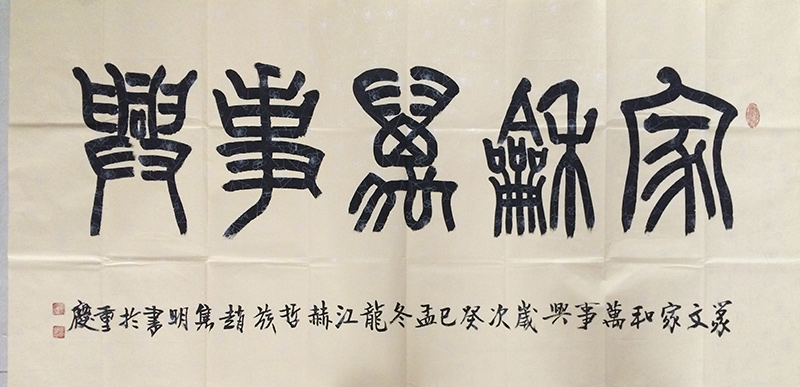 家龢萬事興
篆文家和萬事興歲次癸巳孟冬龍江赫哲族趙雋明書於重慶